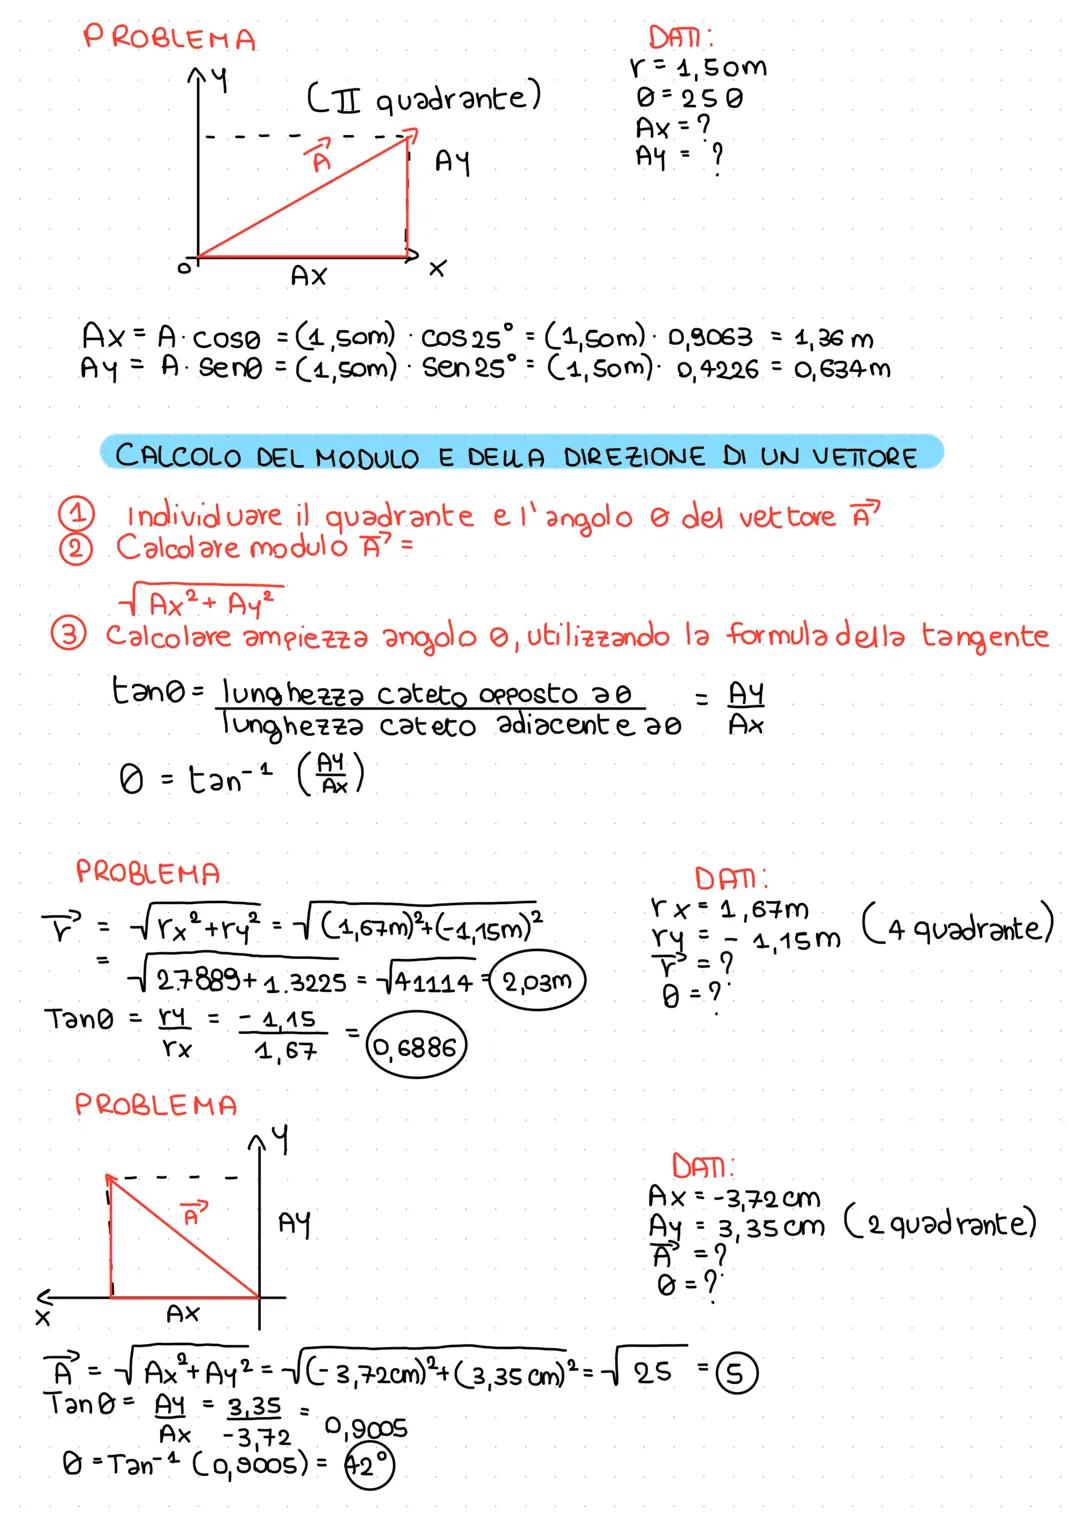 PROBLEMA
DATI:
y
r = 1,50m
(II quadrante)
θ = 25 θ
Ax = ?
A⃗
Ay
Ay = ?
o
Ax
x
Ax = A · cosθ = (1,50m) · cos 25° = (1,50m) · 0,9063 = 1,36 m
Ay = A · senθ = (1,50m) · sen 25° = (1,50m) · 0,4226 = 0,634m
CALCOLO DEL MODULO E DELLA DIREZIONE DI UN VETTORE
① Individuare il quadrante e l'angolo θ del vettore A⃗
② Calcolare modulo A⃗ =
√Ax² + Ay²
③ Calcolare ampiezza angolo θ, utilizzando la formula della tangente
tanθ = lunghezza cateto opposto a θ / lunghezza cateto adiacente a θ = Ay / Ax
θ = tan⁻¹ (Ay / Ax)
PROBLEMA
DATI:
r⃗ = √rx² + ry² = √(1,67m)² + (-1,15m)²
rx = 1,67m
ry = - 1,15m (4 quadrante)
= √2.7889 + 1.3225 = √41114 = 2,03m
r⃗ = ?
θ = ?
Tanθ = ry / rx = - 1,15 / 1,67 = 0,6886
PROBLEMA
y
DATI:
Ax = -3,72 cm
A⃗
Ay
Ay = 3,35 cm (2 quadrante)
A⃗ = ?
θ = ?
x
Ax
A⃗ = √Ax² + Ay² = √(-3,72cm)² + (3,35 cm)² = √25 = 5
Tanθ = Ay / Ax = 3,35 / -3,72 = 0,9005
θ = Tan⁻¹ (0,9005) = 42°